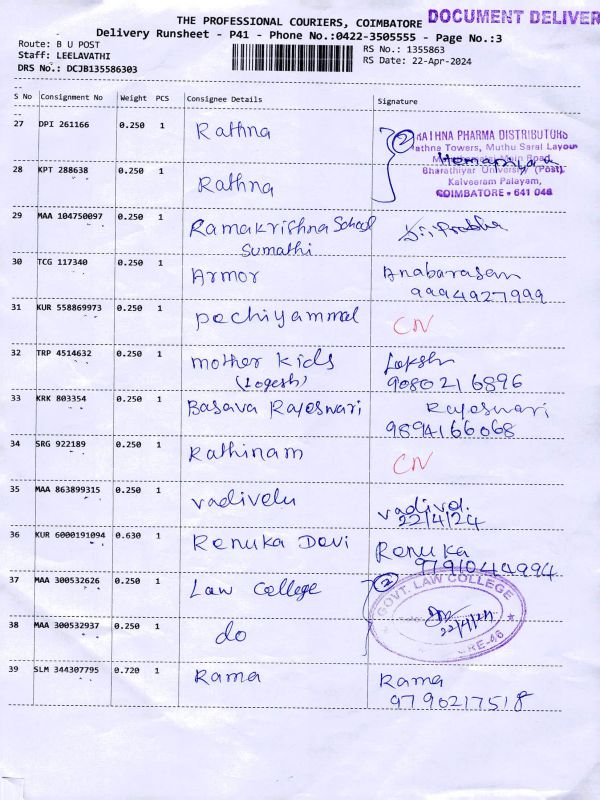 THE PROFESSIONAL COURIERS, COIMBATORE DOCUMENT DELIVER
Delivery Runsheet - P41 - Phone No.:0422-3505555 - Page No.:3
Route: B U POST
Staff: LEELAVATHI
DRS No.: DCJB135586303
RS No.: 1355863
RS Date: 22-Apr-2024
S No Consignment No Weight PCS Consignee Details Signature
27 DPI 261166 0.250 1 Rathna
② RATHNA PHARMA DISTRIBUTORS
Rathna Towers, Muthu Saral Layout
Main Road,
Bharathiyar University (Post),
Kalveeram Palayam,
COIMBATORE - 641 046
28 KPT 288638 0.250 1 Rathna
29 MAA 104750097 0.250 1 Ramakrishna School
Sumathi
30 TCG 117340 0.250 1 Armor Anabarasan
9994927999
31 KUR 558869973 0.250 1 pechiyammal CN
32 TRP 4514632 0.250 1 mother kids
(Logesh) 9080216896
33 KRK 803354 0.250 1 Basava Rajeswari Rajeswari
9894166068
34 SRG 922189 0.250 1 Rathinam CN
35 MAA 863899315 0.250 1 vadivelu vadivel.
22/4/24
36 KUR 6000191094 0.630 1 Renuka Devi Renuka
9791044994
37 MAA 300532626 0.250 1 Law College ② GOVT. LAW COLLEGE
38 MAA 300532937 0.250 1 do 22/4/24
RE-46
39 SLM 344307795 0.720 1 Rama Rama
9790217518